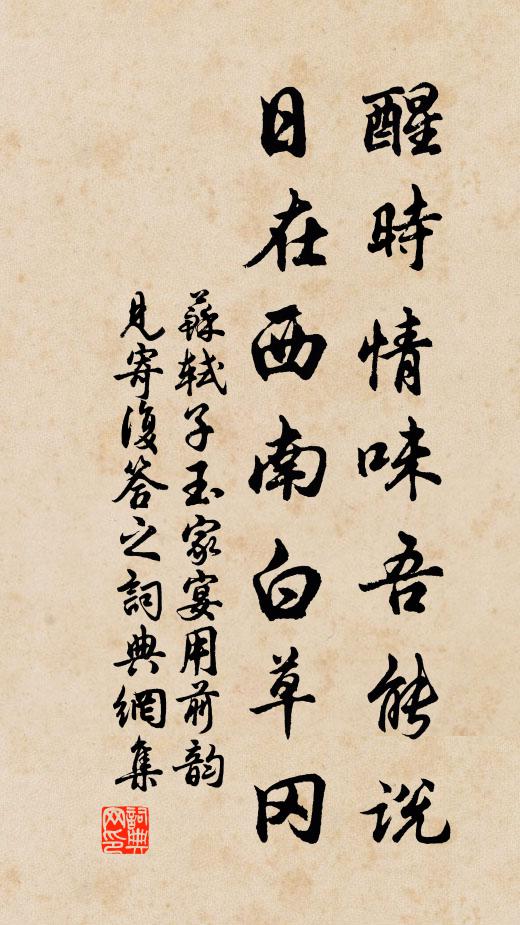 醒時情味吾能說
日在西南白草冈
蘇軾子玉家宴用前韵
見寄復答之詞典網集
詞典网印